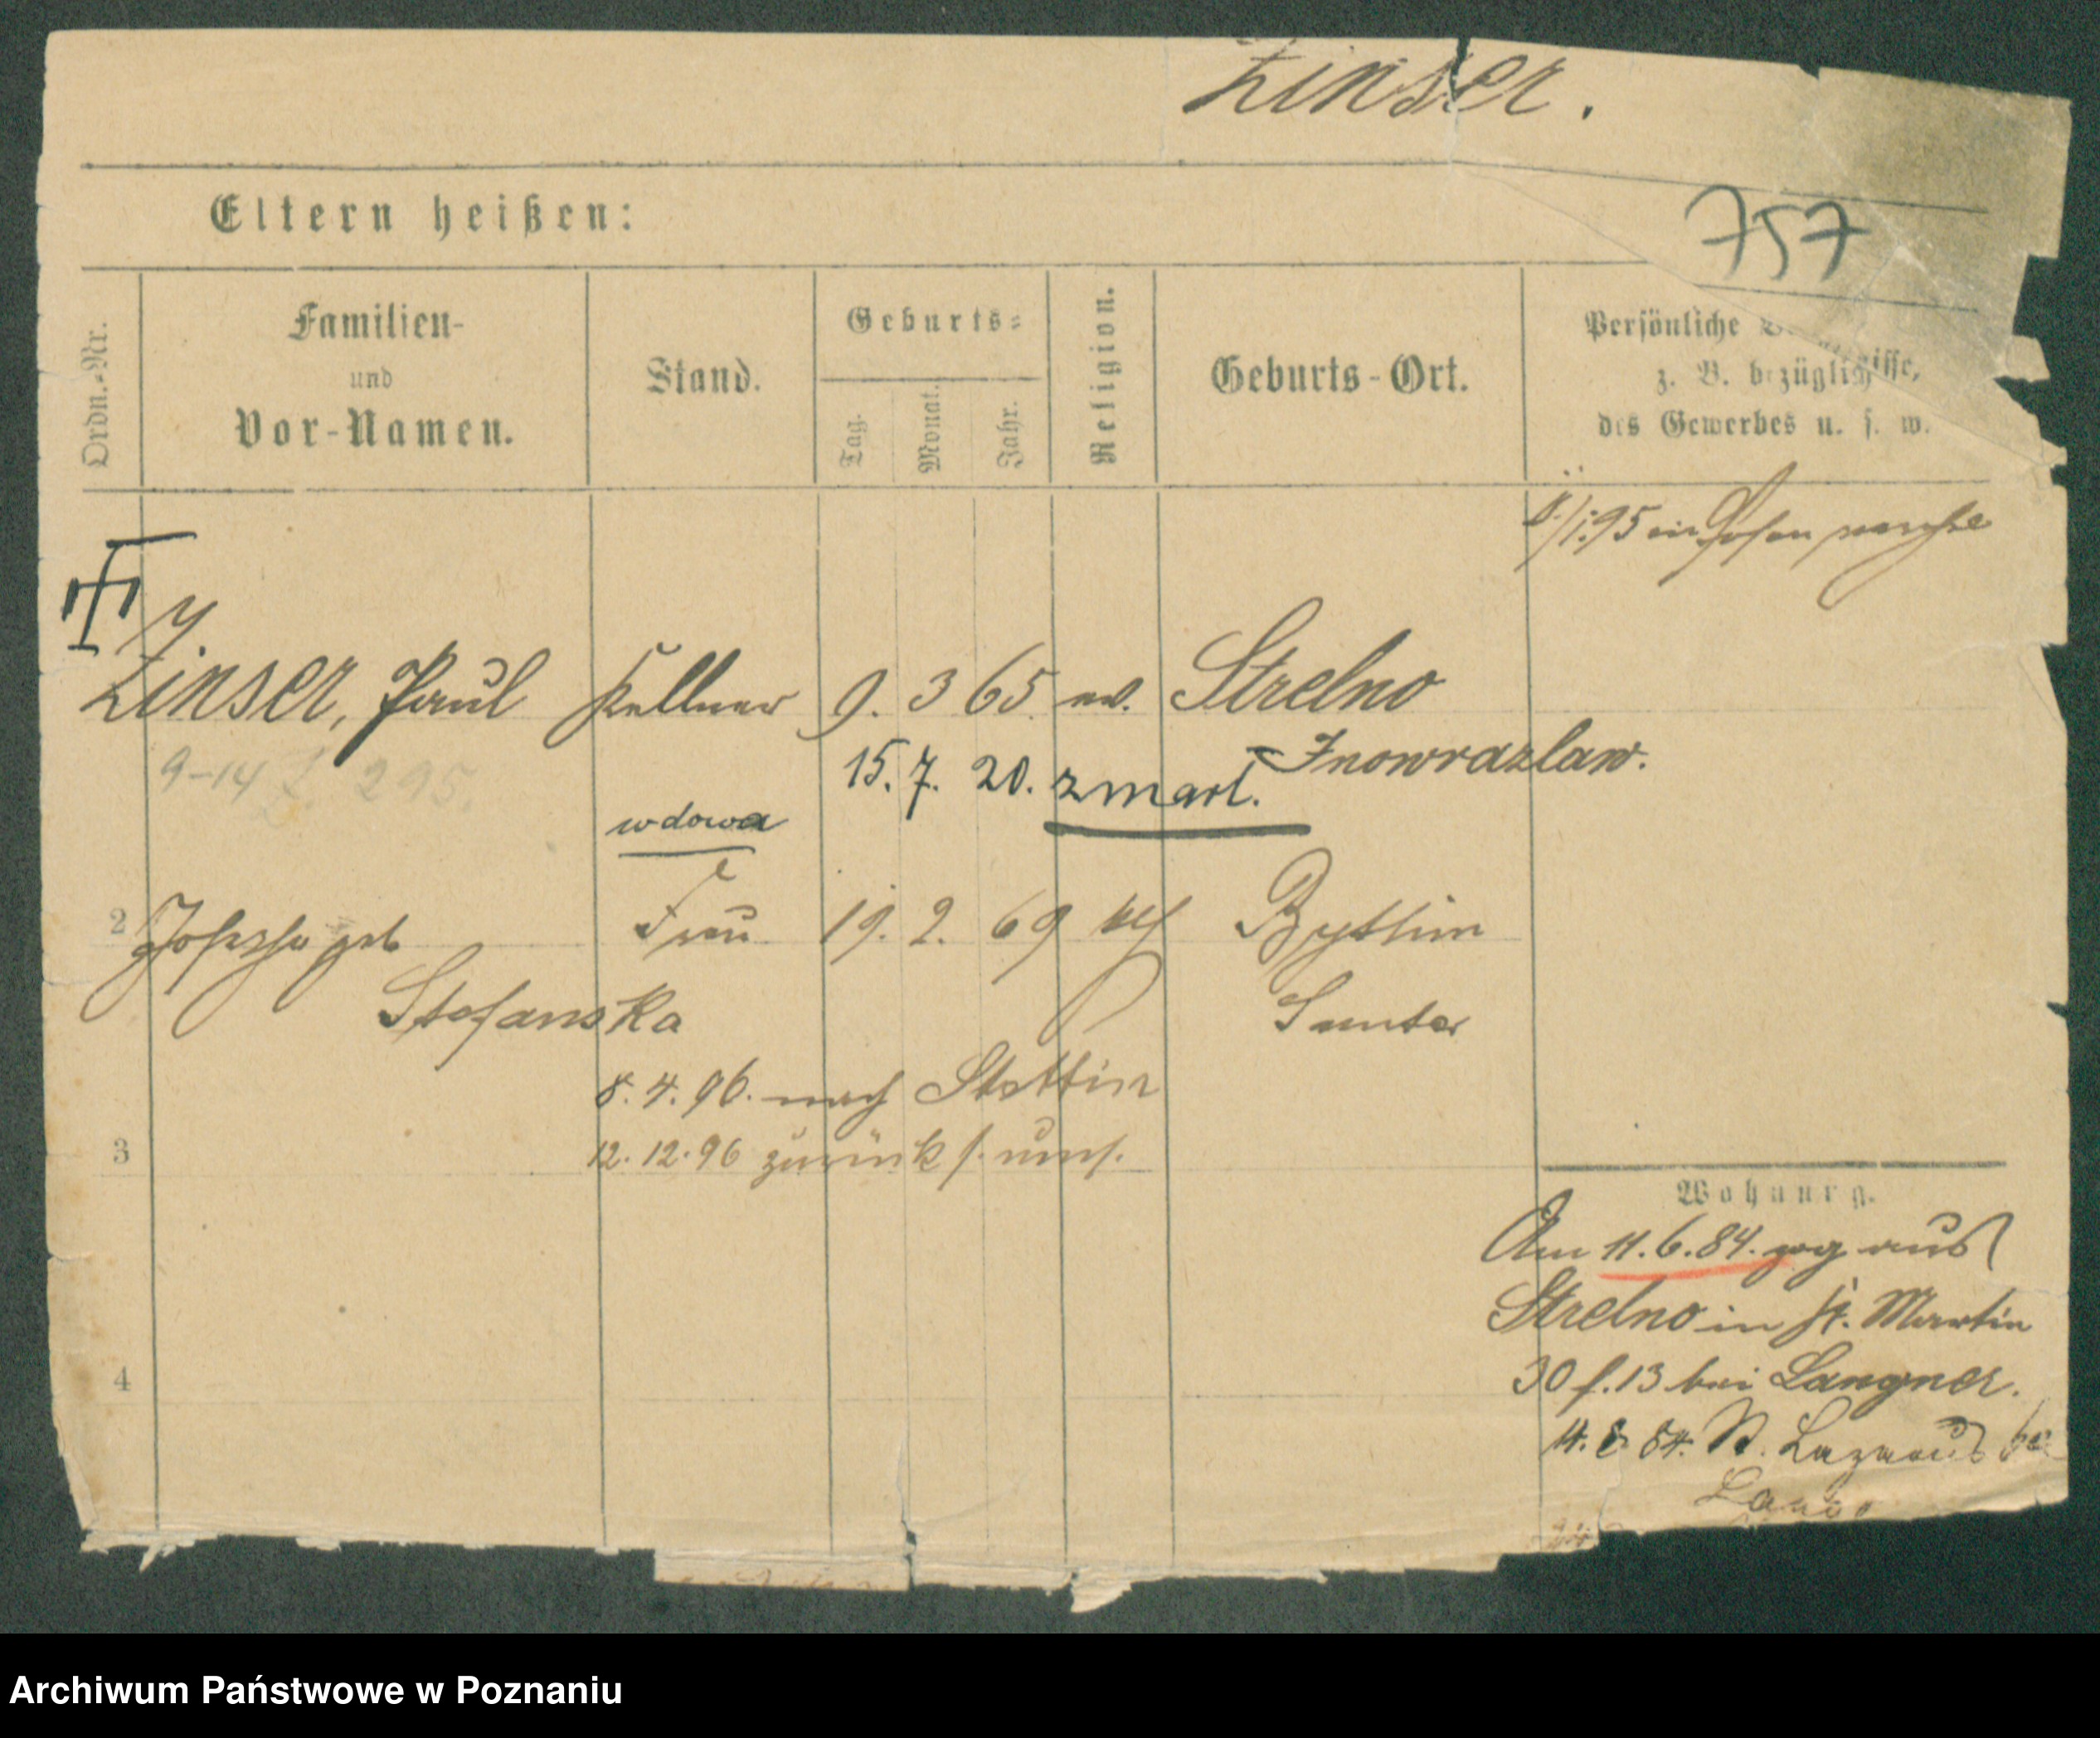 Zinser.
757
Eltern heißen:
Ordn.-Nr.
Familien-
und
Vor-Namen.
Stand.
Geburts-
Tag.
Monat.
Jahr.
Religion.
Geburts-Ort.
Persönliche
z. B. bezüglich
des Gewerbes u. s. w.
1.95 in Posen
Zinser, Paul Kellner 9. 3 65. ev. Strelno
Inowrazlaw.
9-14 Z. 295.
15. 7. 20. zmarł.
wdowa
2 Josepha geb Frau 19. 2. 69 kth Bythin
Stefanska Samter
8. 4. 96. nach Stettin
3 12. 12. 96 zurück
Wohnung.
Am 11. 6. 84. zog aus
Strelno in St. Martin
30 f. 13 bei Langner.
4
St. Lazarus
Archiwum Państwowe w Poznaniu